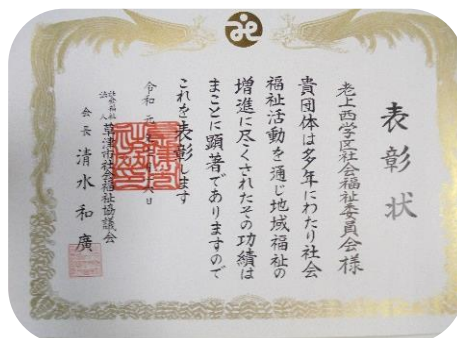 表彰状
老上西学区社会福祉委員会様
貴団体は多年にわたり社会
福祉活動を通じ地域福祉の
増進に尽くされたその功績は
まことに顕著でありますので
これを表彰します
令和元年
社会福祉法人
草津市社会福祉協議会
会長 清水和廣